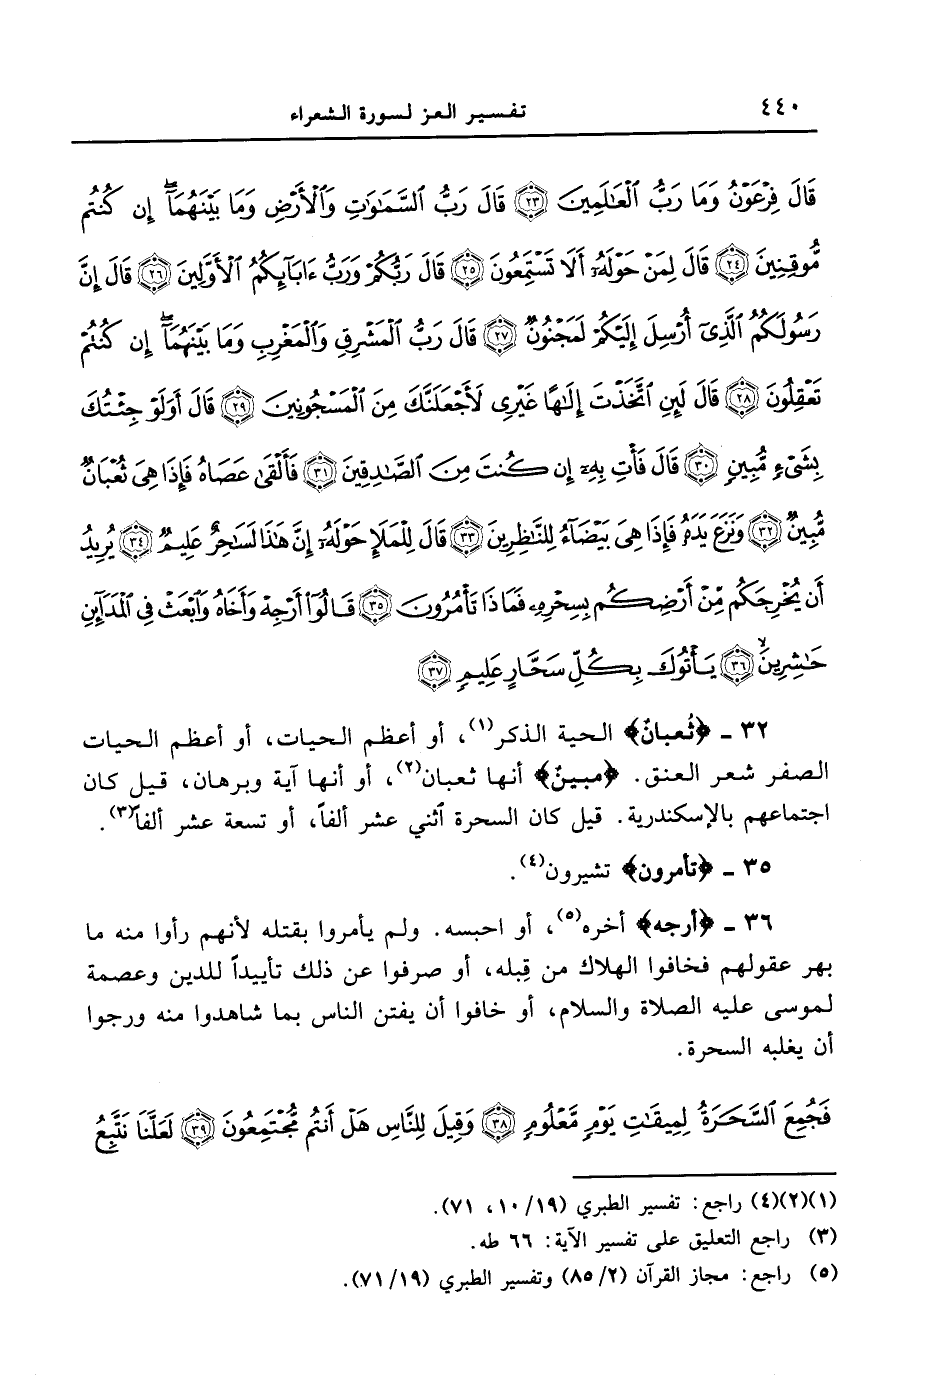 ٤٤٠ تفسير العز لسورة الشعراء
قَالَ فِرْعَوْنُ وَمَا رَبُّ ٱلْعَٰلَمِينَ ﴿٢٣﴾ قَالَ رَبُّ ٱلسَّمَٰوَٰتِ وَٱلْأَرْضِ وَمَا بَيْنَهُمَآ ۖ إِن كُنتُم
مُّوقِنِينَ ﴿٢٤﴾ قَالَ لِمَنْ حَوْلَهُۥٓ أَلَا تَسْتَمِعُونَ ﴿٢٥﴾ قَالَ رَبُّكُمْ وَرَبُّ ءَابَآئِكُمُ ٱلْأَوَّلِينَ ﴿٢٦﴾ قَالَ إِنَّ
رَسُولَكُمُ ٱلَّذِىٓ أُرْسِلَ إِلَيْكُمْ لَمَجْنُونٌ ﴿٢٧﴾ قَالَ رَبُّ ٱلْمَشْرِقِ وَٱلْمَغْرِبِ وَمَا بَيْنَهُمَآ ۖ إِن كُنتُمْ
تَعْقِلُونَ ﴿٢٨﴾ قَالَ لَئِنِ ٱتَّخَذْتَ إِلَٰهًا غَيْرِى لَأَجْعَلَنَّكَ مِنَ ٱلْمَسْجُونِينَ ﴿٢٩﴾ قَالَ أَوَلَوْ جِئْتُكَ
بِشَىْءٍ مُّبِينٍ ﴿٣٠﴾ قَالَ فَأْتِ بِهِۦٓ إِن كُنتَ مِنَ ٱلصَّٰدِقِينَ ﴿٣١﴾ فَأَلْقَىٰ عَصَاهُ فَإِذَا هِىَ ثُعْبَانٌ
مُّبِينٌ ﴿٣٢﴾ وَنَزَعَ يَدَهُۥ فَإِذَا هِىَ بَيْضَآءُ لِلنَّٰظِرِينَ ﴿٣٣﴾ قَالَ لِلْمَلَإِ حَوْلَهُۥٓ إِنَّ هَٰذَا لَسَٰحِرٌ عَلِيمٌ ﴿٣٤﴾ يُرِيدُ
أَن يُخْرِجَكُم مِّنْ أَرْضِكُم بِسِحْرِهِۦ فَمَاذَا تَأْمُرُونَ ﴿٣٥﴾ قَالُوٓا۟ أَرْجِهْ وَأَخَاهُ وَٱبْعَثْ فِى ٱلْمَدَآئِنِ
حَٰشِرِينَ ۙ ﴿٣٦﴾ يَأْتُوكَ بِكُلِّ سَحَّارٍ عَلِيمٍ ﴿٣٧﴾
٣٢ ـ ﴿ثُعبانٌ﴾ الحية الذكر(١)، أو أعظم الحيات، أو أعظم الحيات
الصفر شعر العنق. ﴿مبينٌ﴾ أنها ثعبان(٢)، أو أنها آية وبرهان، قيل كان
اجتماعهم بالإسكندرية. قيل كان السحرة ٱثني عشر ألفاً، أو تسعة عشر ألفاً(٣).
٣٥ ـ ﴿تأمرون﴾ تشيرون(٤).
٣٦ ـ ﴿أرجه﴾ أخره(٥)، أو احبسه. ولم يأمروا بقتله لأنهم رأوا منه ما
بهر عقولهم فخافوا الهلاك من قِبله، أو صرفوا عن ذلك تأييداً للدين وعصمة
لموسى عليه الصلاة والسلام، أو خافوا أن يفتن الناس بما شاهدوا منه ورجوا
أن يغلبه السحرة.
فَجُمِعَ ٱلسَّحَرَةُ لِمِيقَٰتِ يَوْمٍ مَّعْلُومٍ ﴿٣٨﴾ وَقِيلَ لِلنَّاسِ هَلْ أَنتُم مُّجْتَمِعُونَ ﴿٣٩﴾ لَعَلَّنَا نَتَّبِعُ
(١)(٢)(٤) راجع: تفسير الطبري (١٩/ ١٠، ٧١).
(٣) راجع التعليق على تفسير الآية: ٦٦ طه.
(٥) راجع: مجاز القرآن (٢/ ٨٥) وتفسير الطبري (١٩/ ٧١).